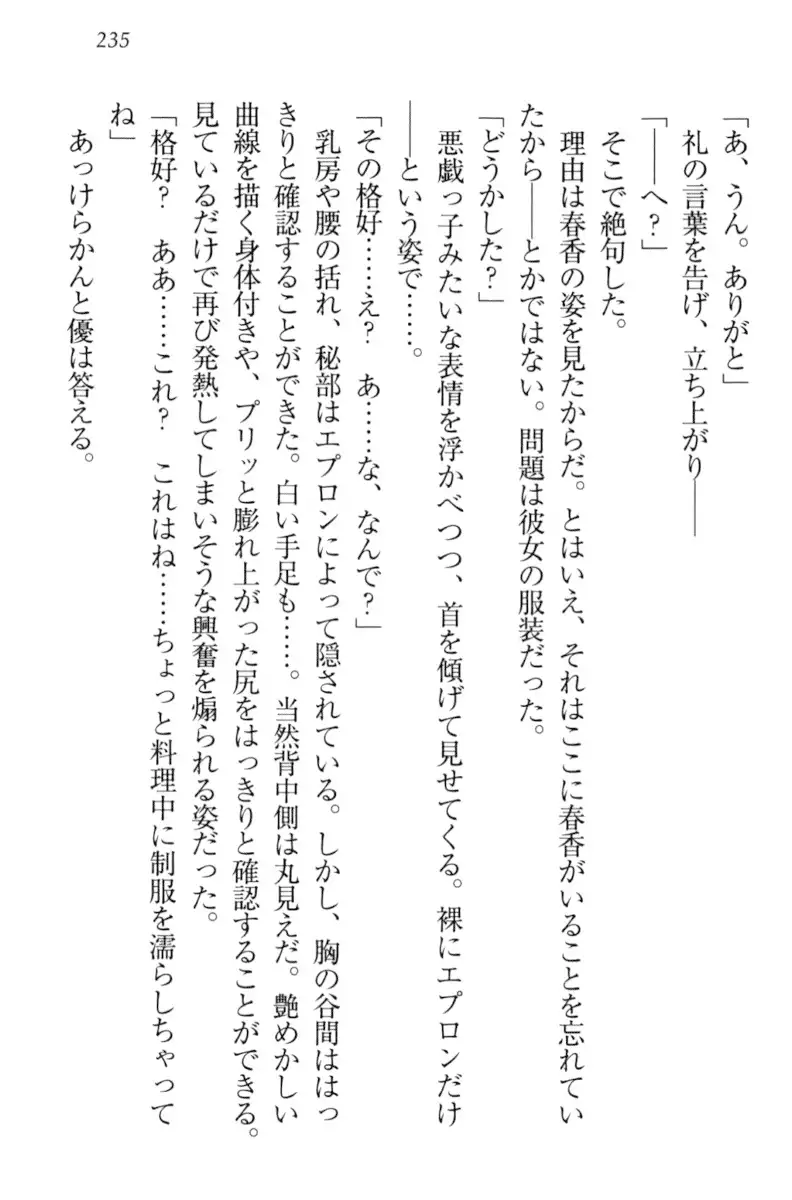 235
「あ、うん。ありがと」
礼の言葉を告げ、立ち上がり――
「――へ？」
そこで絶句した。
理由は春香の姿を見たからだ。とはいえ、それはここに春香がいることを忘れてい
たから――とかではない。問題は彼女の服装だった。
「どうかした？」
悪戯っ子みたいな表情を浮かべつつ、首を傾げて見せてくる。裸にエプロンだけ
――という姿で……。
「その格好……え？　あ……な、なんで？」
乳房や腰の括れ、秘部はエプロンによって隠されている。しかし、胸の谷間ははっ
きりと確認することができた。白い手足も……。当然背中側は丸見えだ。艶めかしい
曲線を描く身体付きや、プリッと膨れ上がった尻をはっきりと確認することができる。
見ているだけで再び発熱してしまいそうな興奮を煽られる姿だった。
「格好？　ああ……これ？　これはね……ちょっと料理中に制服を濡らしちゃって
ね」
あっけらかんと優は答える。